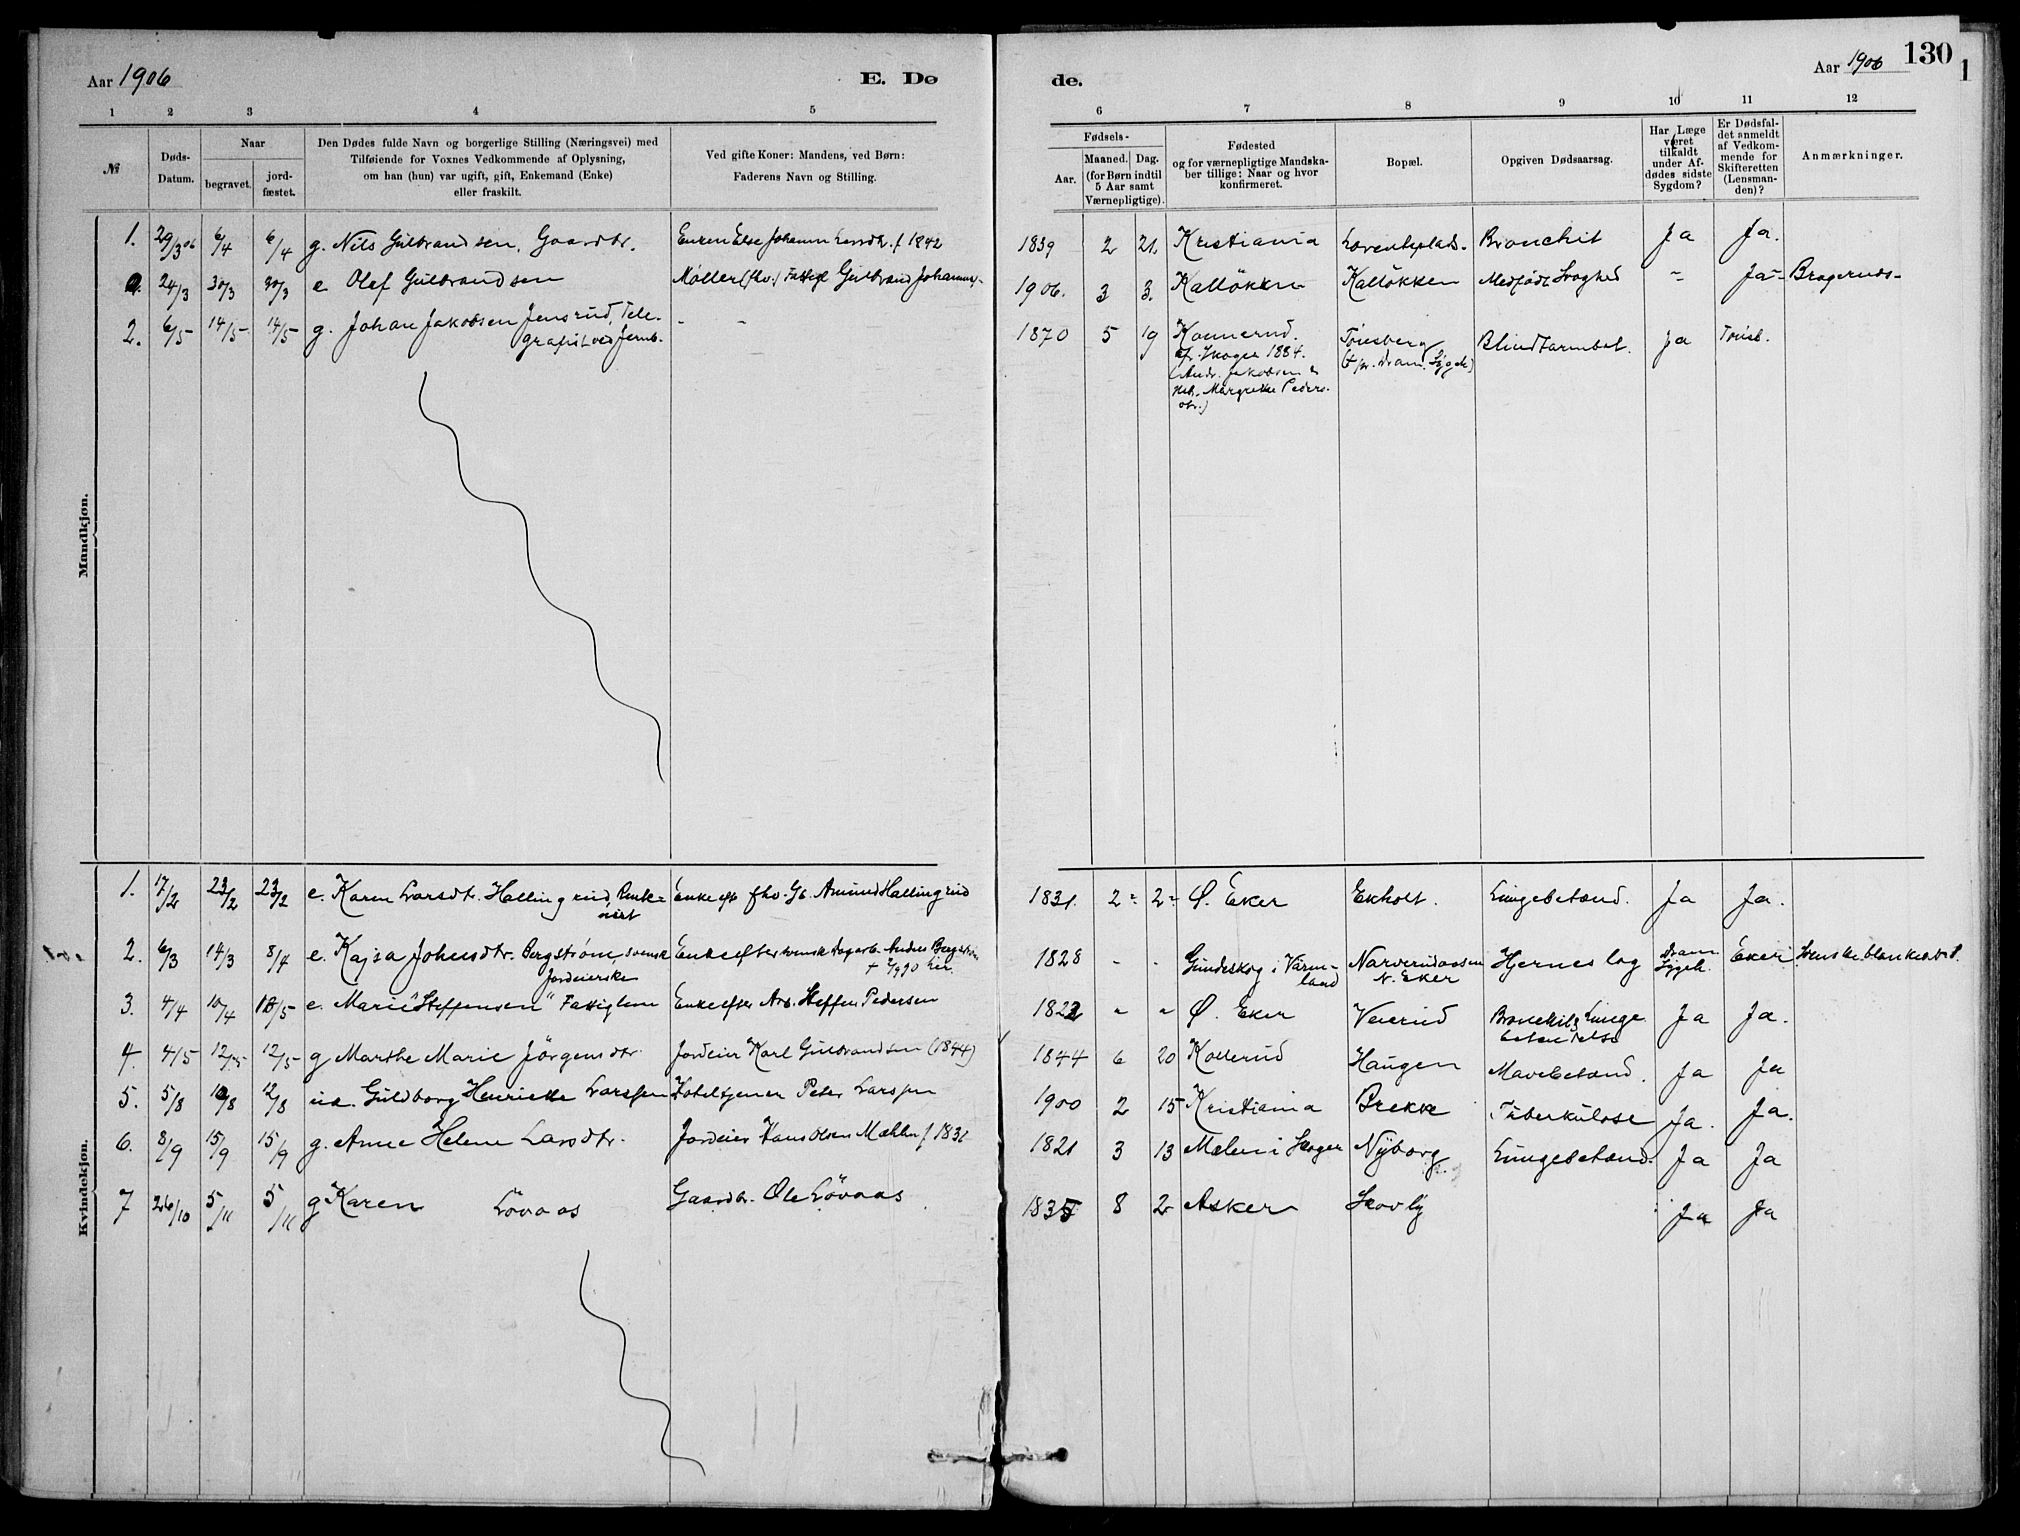 Aar 1906
E. Dø
de.
Aar 1906
130
1 2 3 4 5 6 7 8 9 10 11 12
№
Døds-
Datum.
Naar
begravet.
jord-
fæstet.
Den Dødes fulde Navn og borgerlige Stilling (Næringsvei) med
Tilføiende for Voxnes Vedkommende af Oplysning,
om han (hun) var ugift, gift, Enkemand (Enke)
eller fraskilt.
Ved gifte Koner: Mandens, ved Børn:
Faderens Navn og Stilling.
Fødsels-
Aar.
Maaned. Dag.
(for Børn indtil
5 Aar samt
Værnepligtige).
Fødested
og for værnepligtige Mandska-
ber tillige: Naar og hvor
konfirmeret.
Bopæl.
Opgiven Dødsaarsag.
Har Læge
været
tilkaldt
under Af-
dødes sidste
Sygdom?
Er Dødsfal-
det anmeldt
af Vedkom-
mende for
Skifteretten
(Lensman-
den)?
Anmærkninger.
Mandkjøn.
1. 29/3 06 6/4 6/4 g. Nils Gulbrandsen, Gaardbr. Else f 1842 1839 2 21. Kristiania Bronchit Ja Ja.
24/3 30/3 30/3 e Olef Gulbrandsen Gulbrand 1906. 3 3. Kalløkken Kalløkken Medfødt Svaghed " Ja Bragernæs
2. 6/5 14/5 14/5 g. Johan Jakobsen Jensrud, Tele- - - 1870 5 19 Konnerud. Tønsberg Blindtarmbet. Ja Tønsb.
grafist ved Jernb. Skoger 1884.
Jakobsen &
Margrethe Peders-
dtr.)
Kvindekjøn.
1. 17/2 23/2 23/2 e. Karen Larsdtr. Hallingrud, Enke eft fhv. Gb. Amund Hallingrud 1831. 2 2 Ø. Eker Ekholt. Lungebetænd. Ja Ja.
2. 6/3 14/3 8/4 e. Kajsa Johnsdtr. Bergstrøm, svensk Enke efter svensk Dagarb. Anders Bergstrøm 1828 - - Gundeskog i Värm- Narverudaasen Hjerneslag Dram. Eker
Jordeierske land N. Eker Sygeh.
3. 4/4 10/4 18/5 e. Marie "Steffensen" Fattiglem Enke efter Arb. Steffen Pedersen 1822 " " Ø. Eker Veierud Bronchit & Lunge Ja Ja.
betændelse
4. 4/5 12/5 12/5 g Marthe Marie Jørgensdtr. Jordeier Karl Gulbrandsen (1844) 1844 6 20 Kollerud Haugen Mavebetænd. Ja Ja
5. 5/8 12/8 12/8 Guldborg Henriette Larssen Hoteltjener Peter Larssen 1900 2 15 Kristiania Brekke Tuberkulose Ja. Ja.
6. 8/9 15/9 15/9 g. Anne Helene Larsdtr. Jordeier Hans Olsen Mælen f 1831 1821 3 13 Mælen i Skoger Nyborg Lungebetænd. Ja Ja
7 26/10 5/11 5/11 g Karen Løvaas Gaardbr. Ole Løvaas 1835 8 2 Asker Skovly Ja Ja